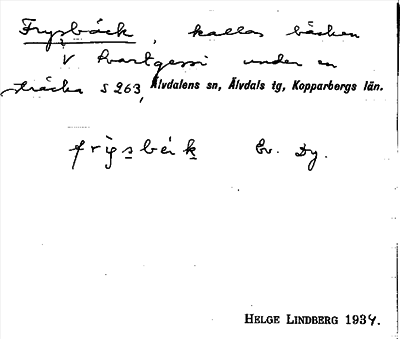 Frysbäck, kallas bäcken
V Svartgessi under en
sträcka S 263, Älvdalens sn, Älvdals tg, Kopparbergs län.
frỳsbẹ́k Ev. Dy.
HELGE LINDBERG 1934.